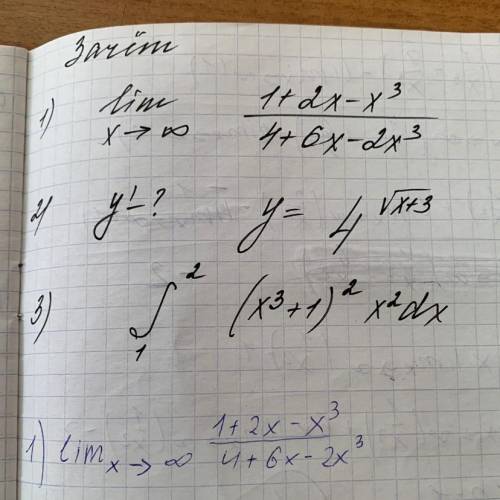 Залік
1) lim x→∞ (1+2x-x³)/(4+6x-2x³)
2) y'-? y = 4^√(x+3)
3) ∫₁² (x³+1)² x² dx
1) lim x→∞ (1+2x-x³)/(4+6x-2x³)